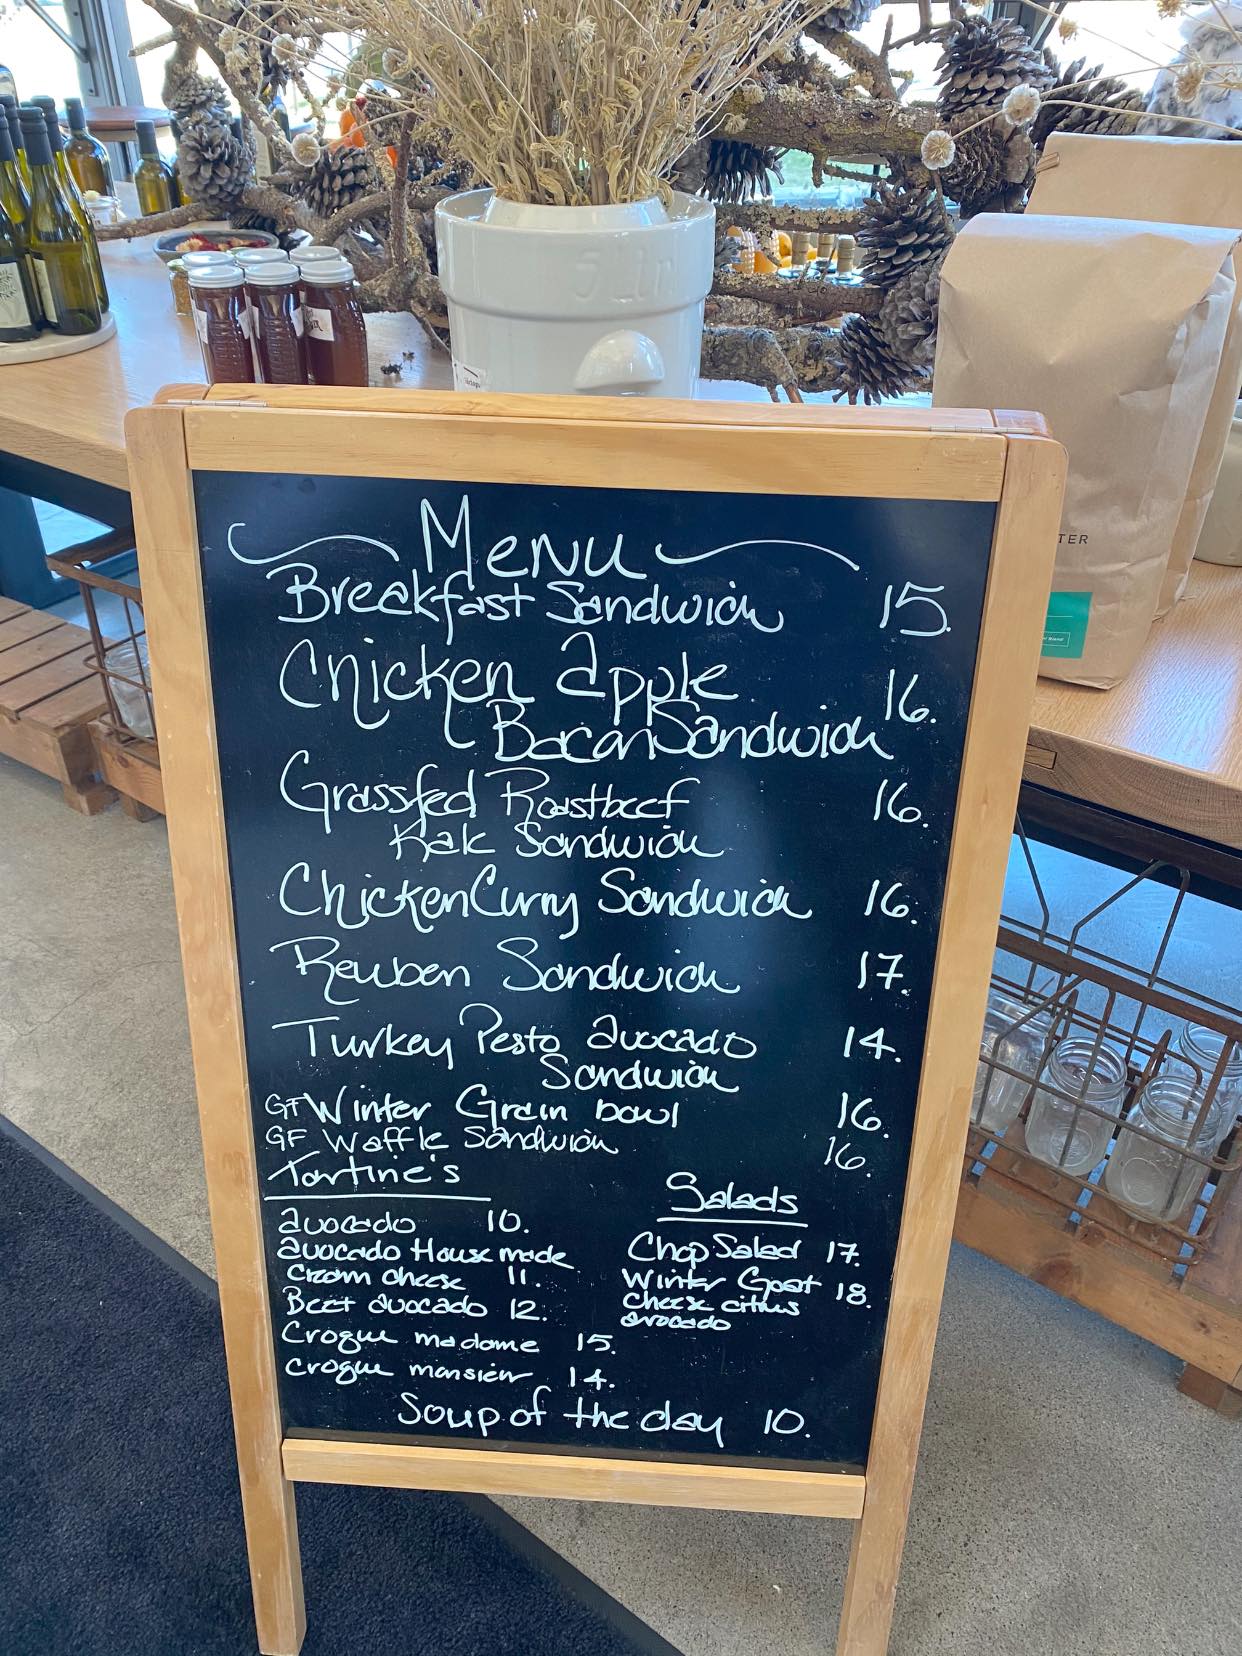 Menu
Breakfast Sandwich 15.
Chicken apple 16.
Bacon Sandwich
Grassfed Roastbeef 16.
Kale Sandwich
Chicken Curry Sandwich 16.
Reuben Sandwich 17.
Turkey Pesto avocado 14.
Sandwich
GF Winter Grain bowl 16.
GF Waffle Sandwich 16.
Tartine's
avocado 10.
avocado House made
cream cheese 11.
Beet avocado 12.
Croque madame 15.
croque monsieur 14.
Salads
Chop Salad 17.
Winter Goat 18.
cheese citrus
avocado
Soup of the day 10.
TER